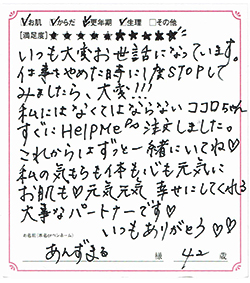 ☑お肌 ☑からだ ☑更年期 ☑生理 □その他
【満足度】★★★★★★★★★★
いつも大変お世話になっています。
仕事をやめた時に1度STOPして
みましたら、大変!!!
私にはなくてはならないココロちゃん
すぐにHelpMe 注文しました。
これからはずっと一緒にいてね♡
私の気もちも体も心も元気に
お肌も♡元気元気 幸せにしてくれる
大事なパートナーです♡
いつもありがとう♡♡
お名前(匿名orペンネーム)
あんずまる 様 42 歳